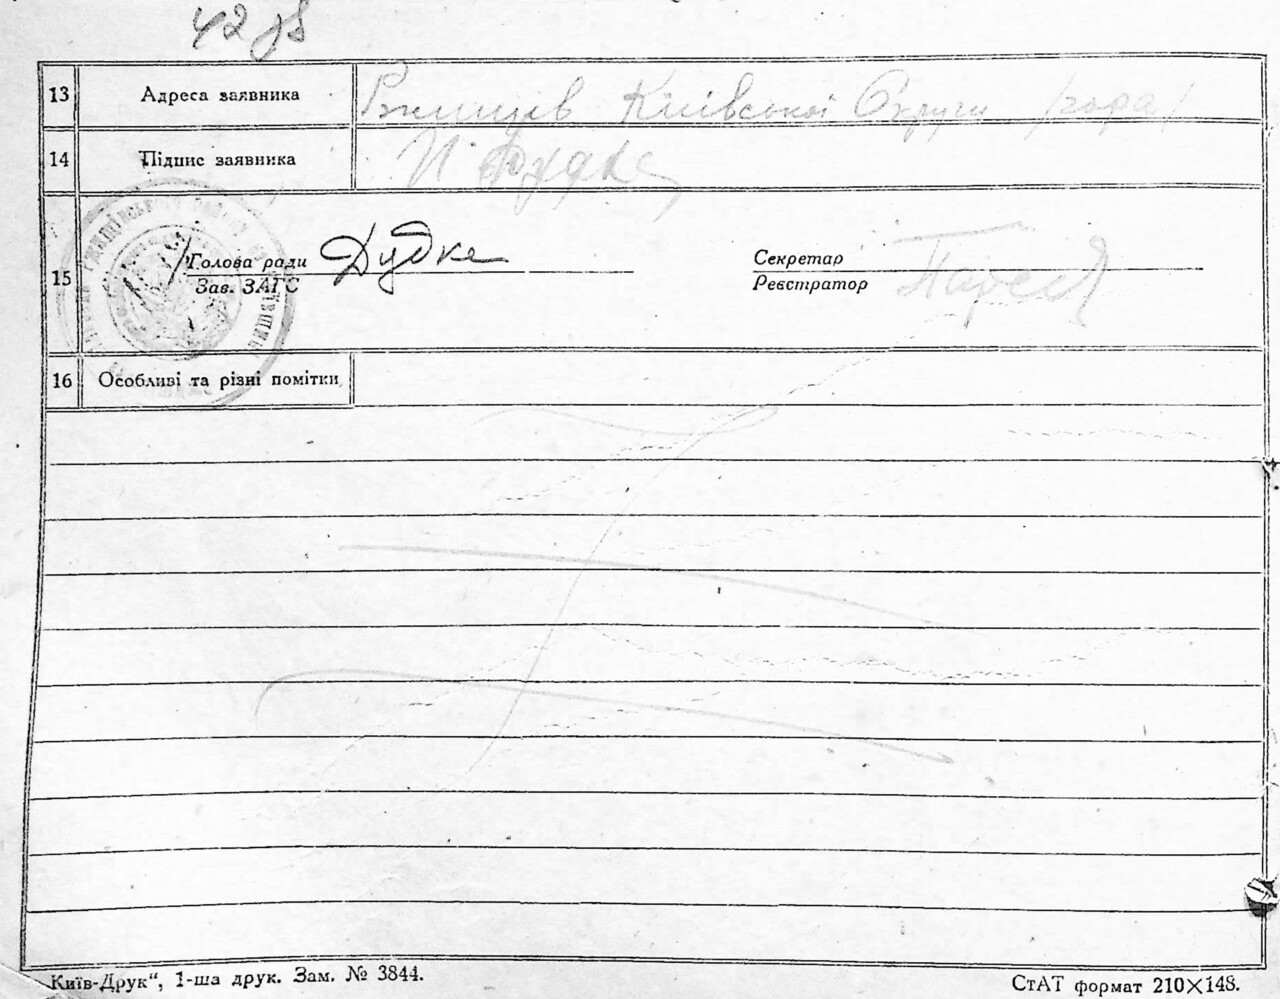 42
13 Адреса заявника Ржищів Київської Округи /гора/
14 Підпис заявника
15 Голова ради Дудке Секретар
Зав. ЗАГС Реєстратор
16 Особливі та різні помітки
Київ-Друк“, 1-ша друк. Зам. № 3844. СтАТ формат 210×148.